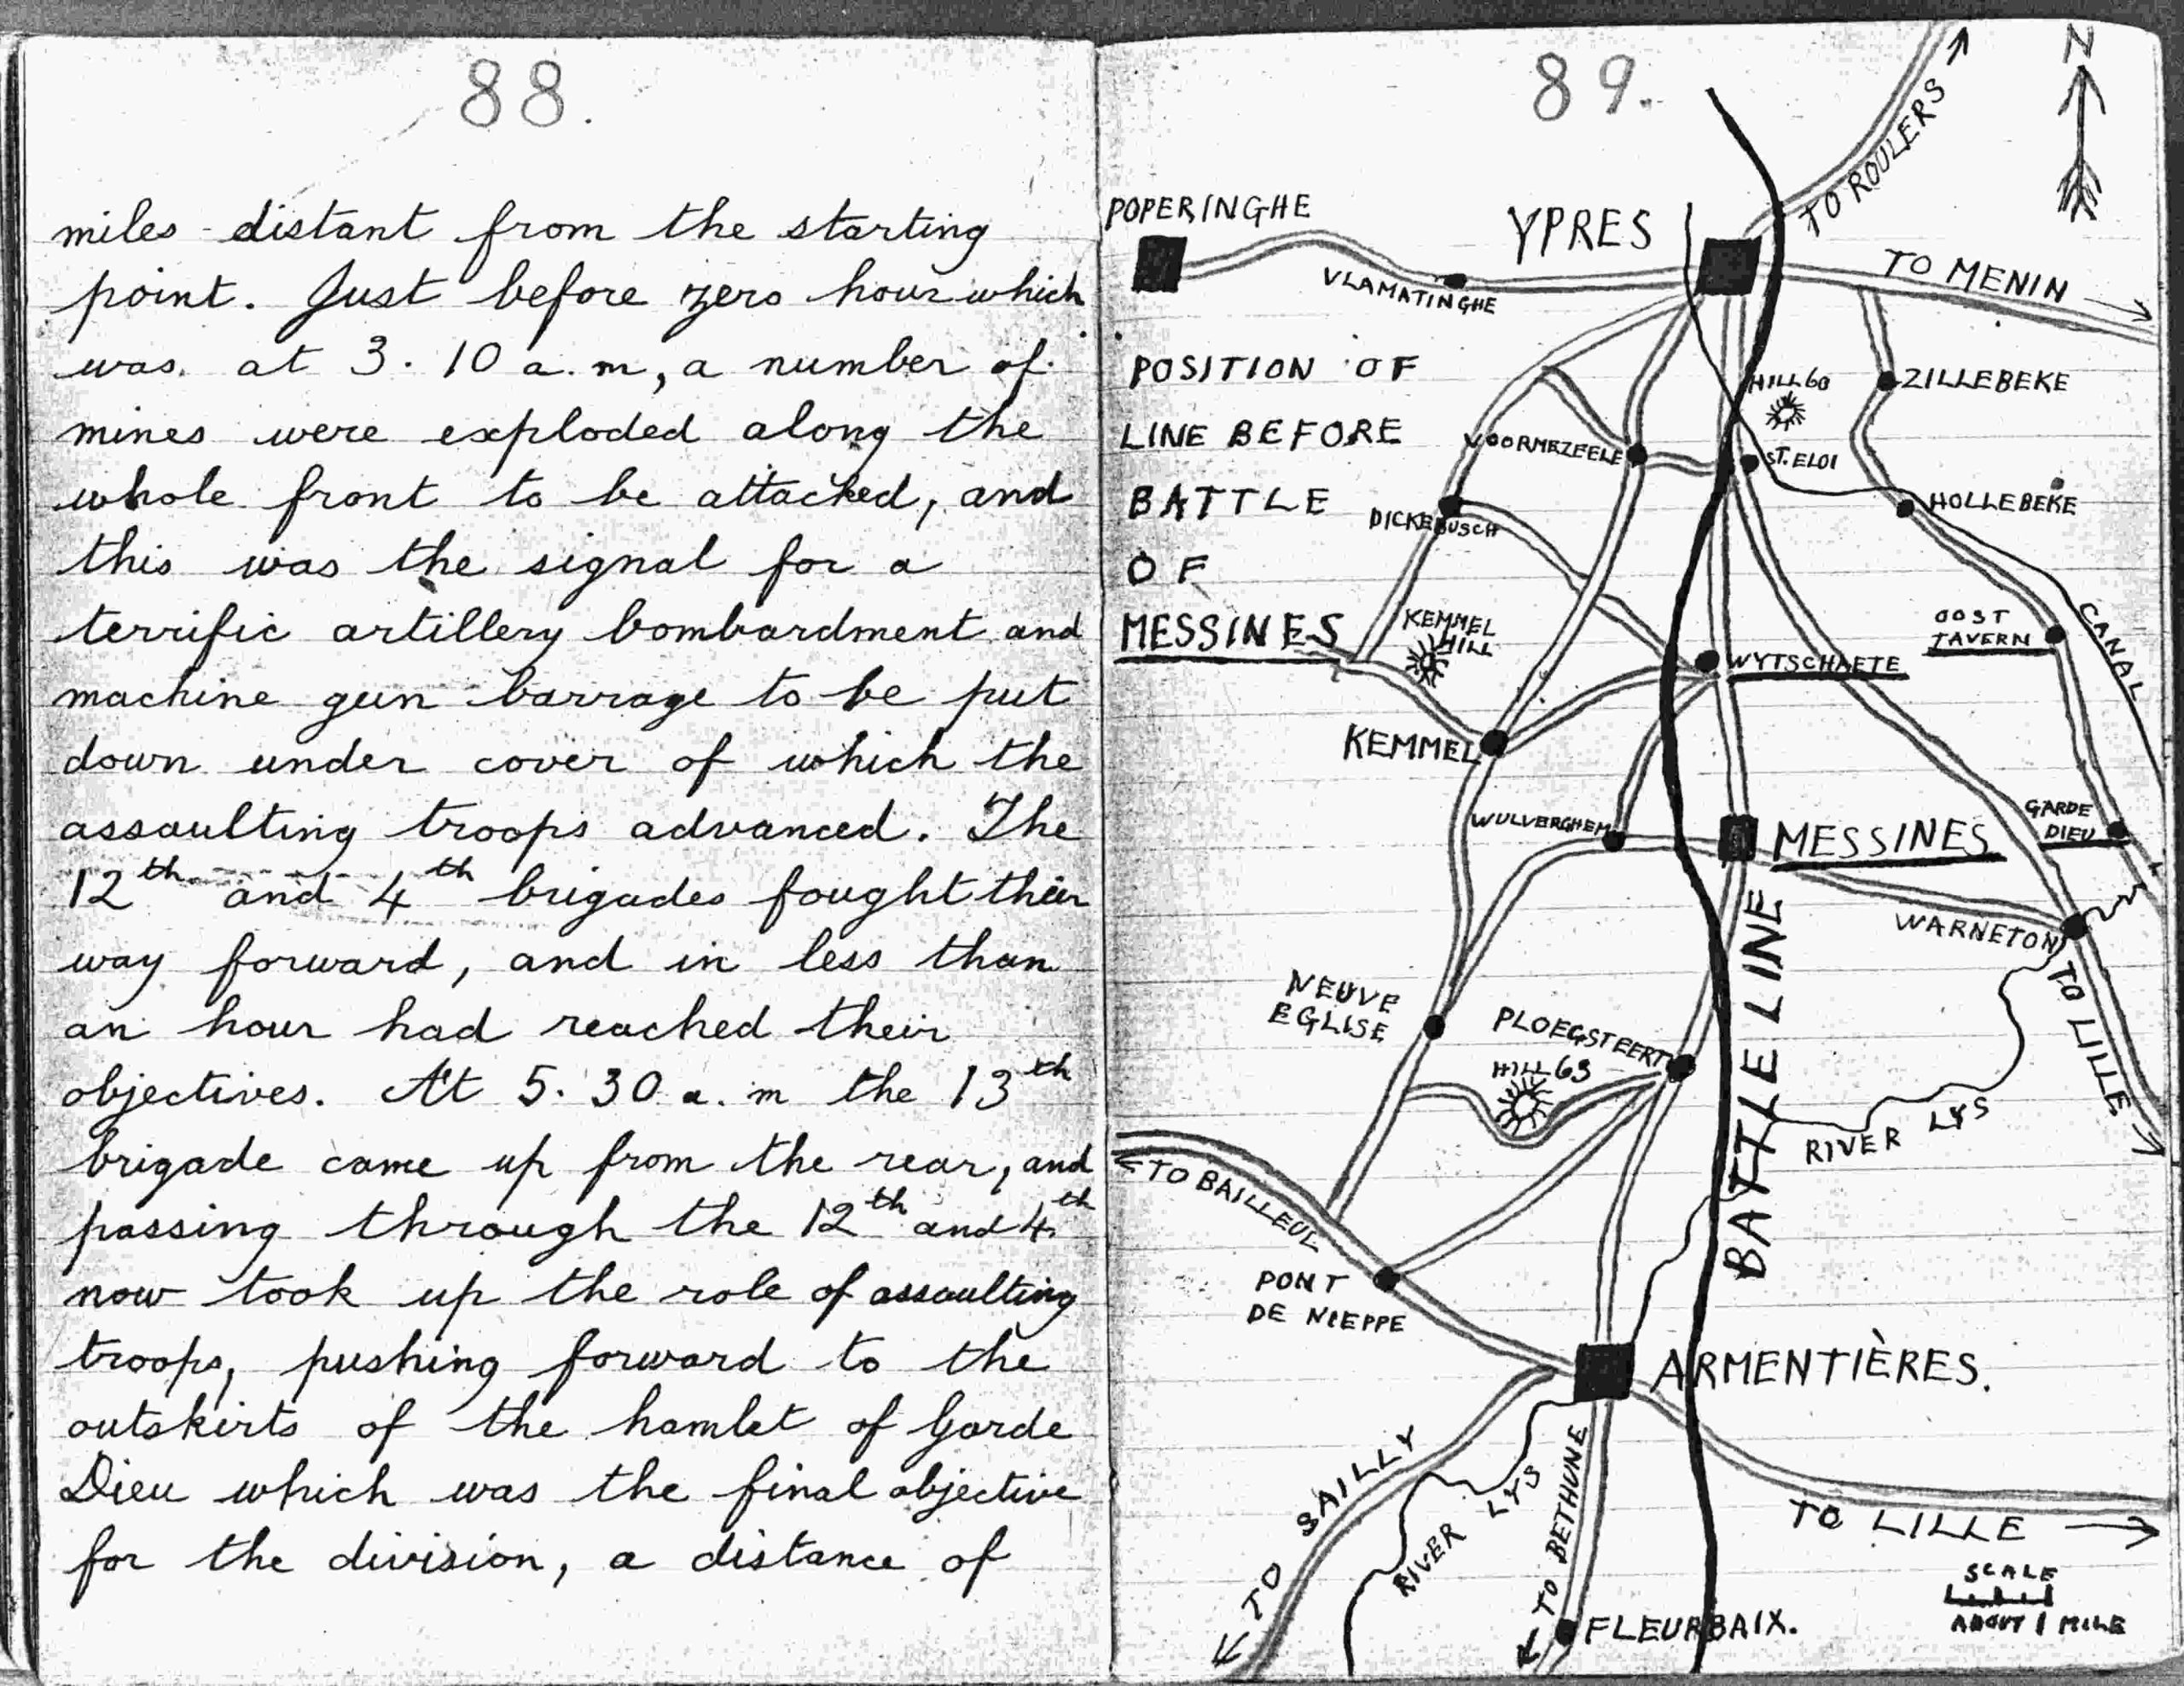 88.
miles distant from the starting
point. Just before zero hour which
was at 3.10 a.m, a number of
mines were exploded along the
whole front to be attacked, and
this was the signal for a
terrific artillery bombardment and
machine gun barrage to be put
down under cover of which the
assaulting troops advanced. The
12th and 4th brigades fought their
way forward, and in less than
an hour had reached their
objectives. At 5.30 a.m the 13th
brigade came up from the rear, and
passing through the 12th and 4th
now took up the role of assaulting
troops, pushing forward to the
outskirts of the hamlet of Garde
Dieu which was the final objective
for the division, a distance of
89.
N
TO ROULERS
POPERINGHE
YPRES
VLAMATINGHE
TO MENIN
POSITION OF
LINE BEFORE
BATTLE
OF
MESSINES
HILL 60
ZILLEBEKE
VOORMEZEELE
ST. ELOI
DICKEBUSCH
HOLLEBEKE
KEMMEL
HILL
OOST
TAVERN
CANAL
WYTSCHAETE
KEMMEL
WULVERGHEM
MESSINES
GARDE
DIEU
WARNETON
BATTLE LINE
TO LILLE
NEUVE
EGLISE
PLOEGSTEERT
HILL 63
RIVER LYS
TO BAILLEUL
PONT
DE NIEPPE
ARMENTIÈRES.
TO SAILLY
RIVER LYS
TO BETHUNE
TO LILLE
SCALE
ABOUT 1 MILE
FLEURBAIX.